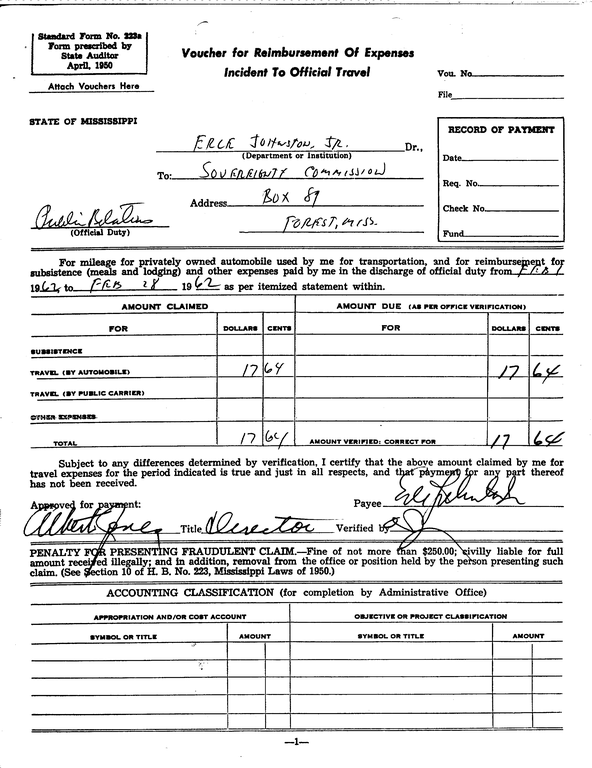 Standard Form No. 223a
Form prescribed by
State Auditor
April, 1950
Attach Vouchers Here
Voucher for Reimbursement Of Expenses
Incident To Official Travel
Vou. No.
File
STATE OF MISSISSIPPI
ERLE JOHNSTON, JR. Dr.,
(Department or Institution)
To: SOVEREIGNTY COMMISSION
Address BOX 89
FOREST, MISS.
Public Relations
(Official Duty)
RECORD OF PAYMENT
Date
Req. No.
Check No.
Fund
For mileage for privately owned automobile used by me for transportation, and for reimbursement for
subsistence (meals and lodging) and other expenses paid by me in the discharge of official duty from FEB 1
1962, to FEB 28 1962 as per itemized statement within.
AMOUNT CLAIMED AMOUNT DUE (AS PER OFFICE VERIFICATION)
FOR DOLLARS CENTS FOR DOLLARS CENTS
SUBSISTENCE
TRAVEL (BY AUTOMOBILE) 17 64 17 64
TRAVEL (BY PUBLIC CARRIER)
OTHER EXPENSES
TOTAL 17 64 AMOUNT VERIFIED: CORRECT FOR 17 64
Subject to any differences determined by verification, I certify that the above amount claimed by me for
travel expenses for the period indicated is true and just in all respects, and that payment for any part thereof
has not been received.
Approved for payment: Payee Erle Johnston Jr
Albert Jones Title Director Verified by
PENALTY FOR PRESENTING FRAUDULENT CLAIM.—Fine of not more than $250.00; civilly liable for full
amount received illegally; and in addition, removal from the office or position held by the person presenting such
claim. (See Section 10 of H. B. No. 223, Mississippi Laws of 1950.)
ACCOUNTING CLASSIFICATION (for completion by Administrative Office)
APPROPRIATION AND/OR COST ACCOUNT OBJECTIVE OR PROJECT CLASSIFICATION
SYMBOL OR TITLE AMOUNT SYMBOL OR TITLE AMOUNT
—1—